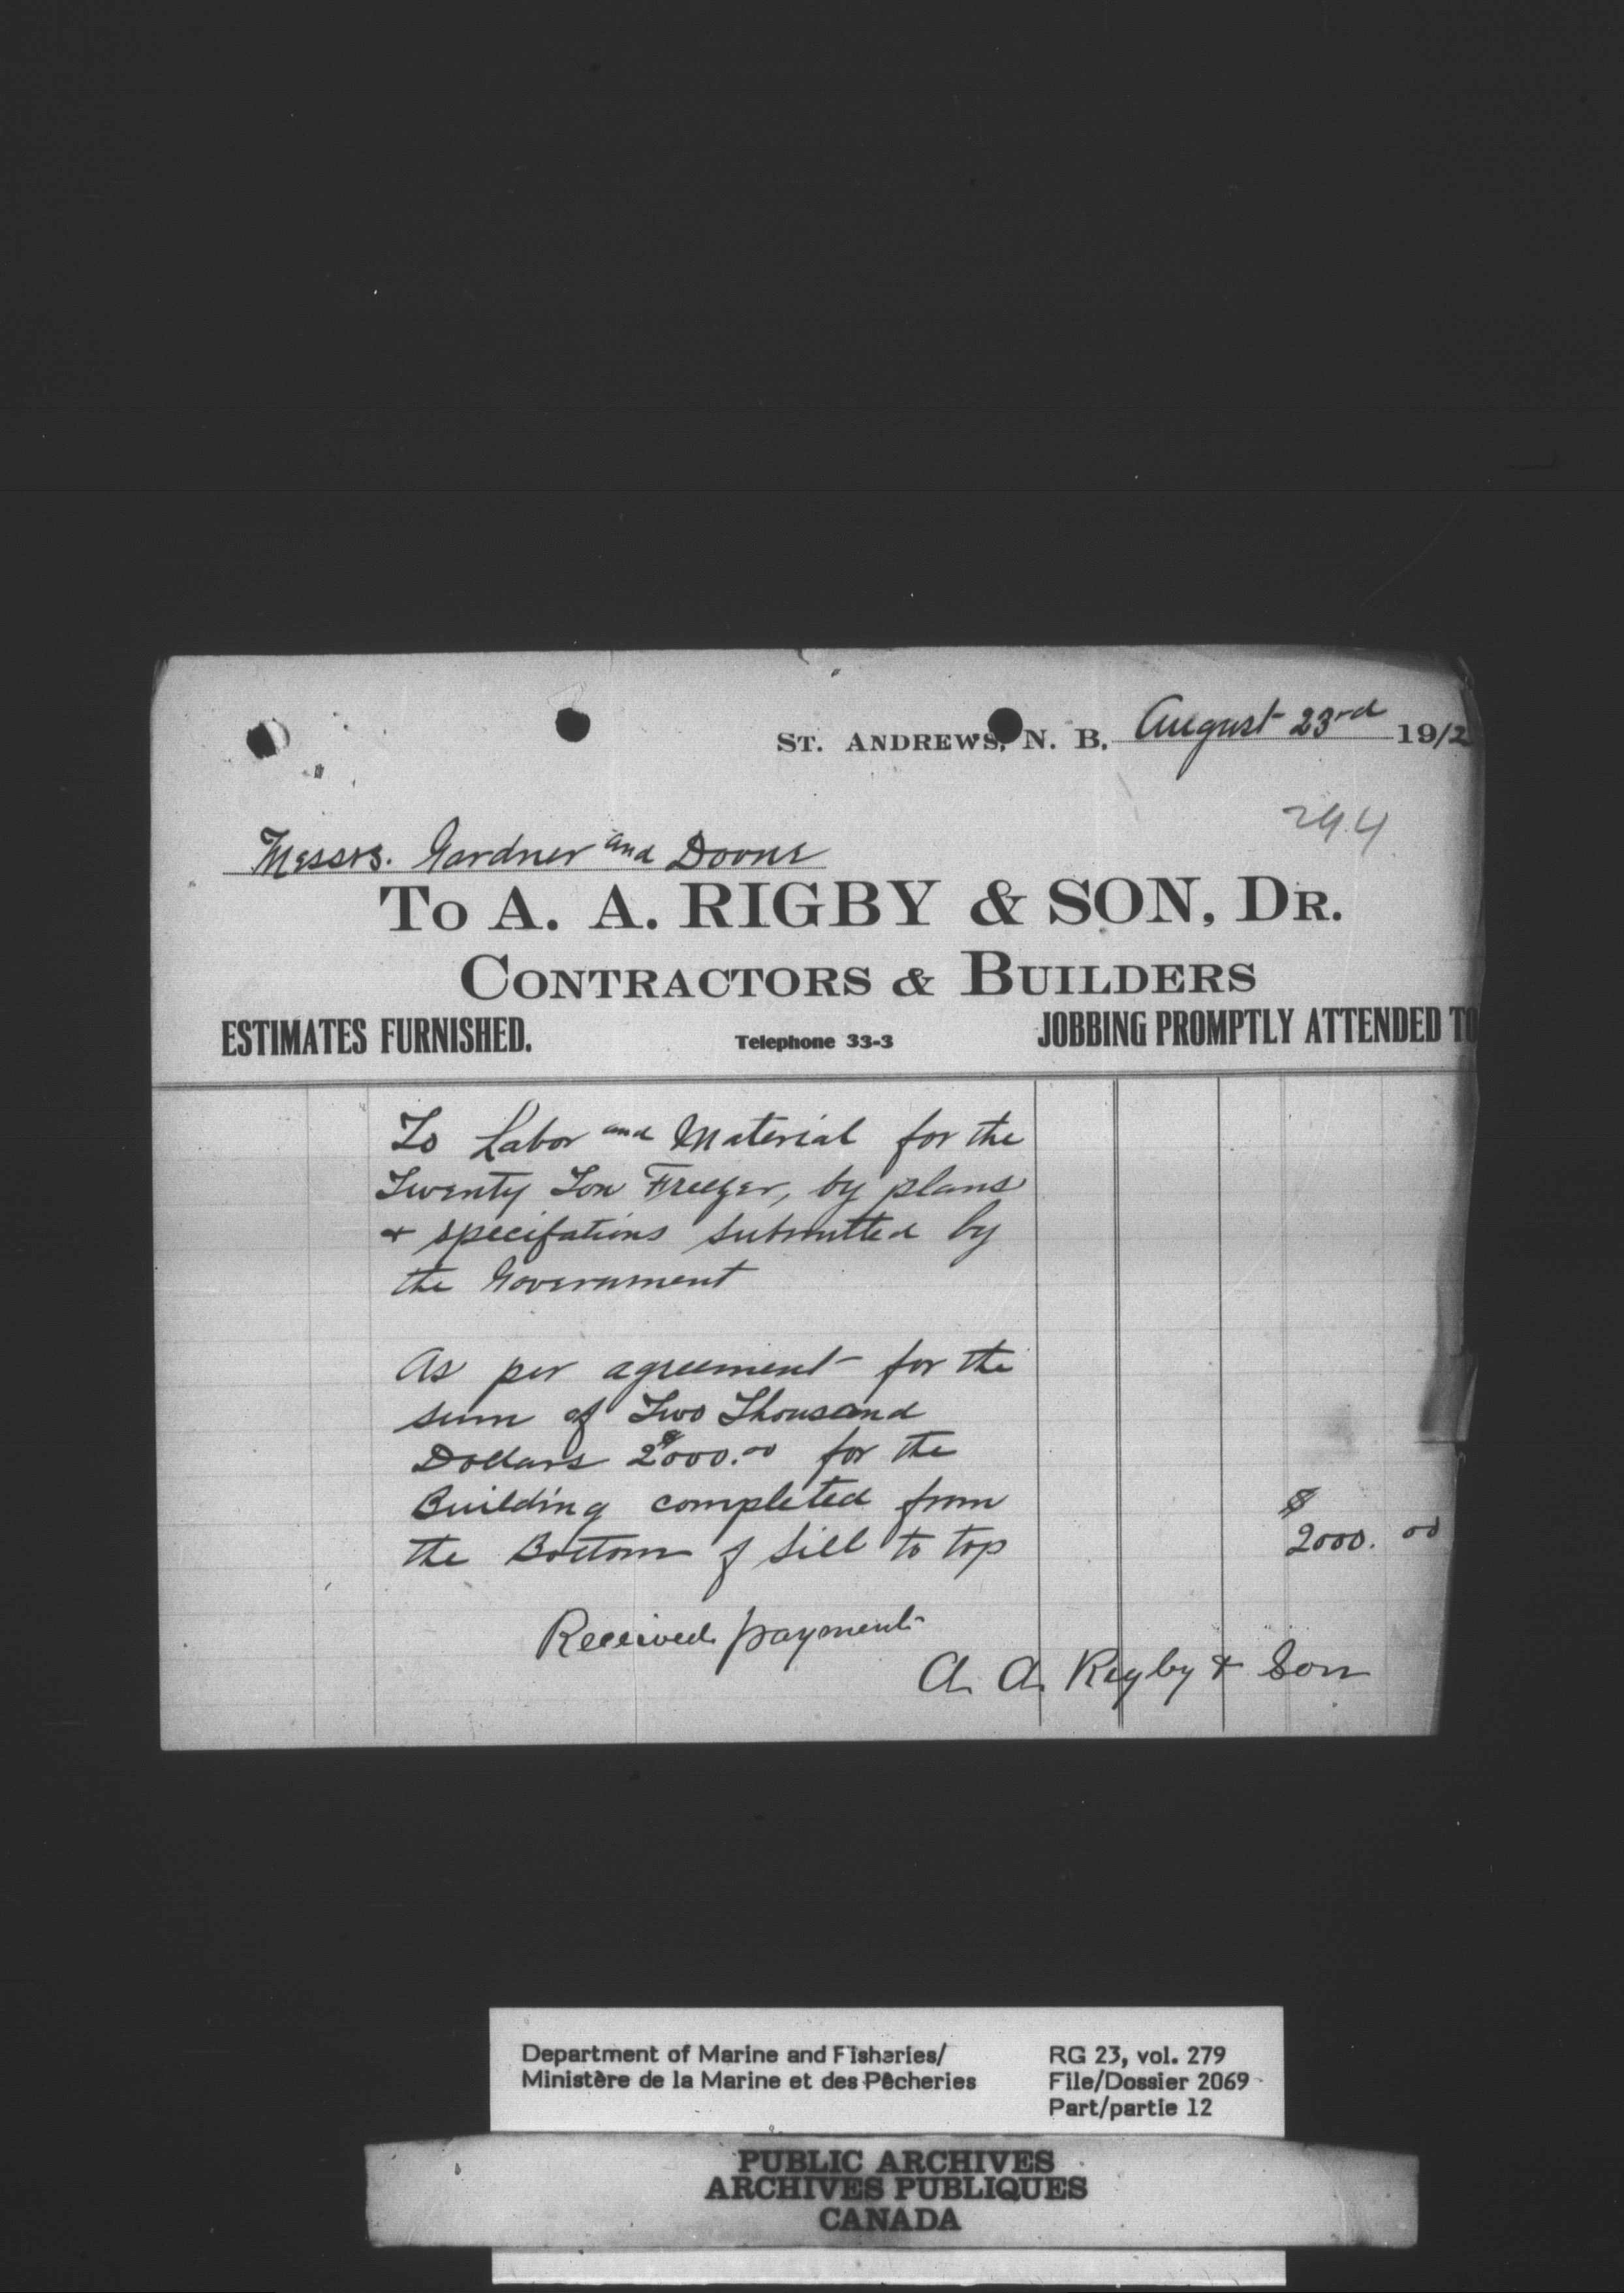 ST. ANDREWS, N. B. August 23rd 1912
294
Messrs. Gardner and Doone
TO A. A. RIGBY & SON, DR.
CONTRACTORS & BUILDERS
ESTIMATES FURNISHED. Telephone 33-3 JOBBING PROMPTLY ATTENDED TO
To Labor and Material for the
Twenty Ton Freezer, by plans
& specifations submitted by
the Government
As per agreement for the
sum of Two Thousand
Dollars $2000.00 for the
Building completed from
the Bottom of sill to top $2000.00
Received payment
A. A. Rigby & Son
Department of Marine and Fisheries/ RG 23, vol. 279
Ministère de la Marine et des Pêcheries File/Dossier 2069
Part/partie 12
PUBLIC ARCHIVES
ARCHIVES PUBLIQUES
CANADA